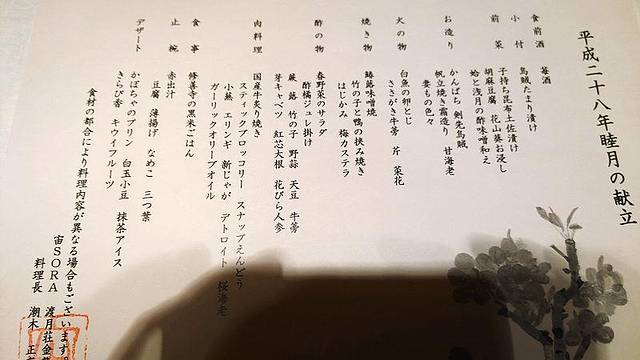 平成二十八年睦月の献立
食前酒 苺酒
小付 烏賊たまり漬け
前菜 子持ち昆布土佐漬け
胡麻豆腐 花山葵お浸し
蛤と浅月の酢味噌和え
お造り かんぱち 剣先烏賊
帆立焼き霜造り 甘海老
妻もの色々
火の物 白魚の卵とじ
ささがき牛蒡 芹 菜花
焼き物 鰆蕗味噌焼
竹の子と鴨の挟み焼き
はじかみ 梅カステラ
酢の物 春野菜のサラダ
酢橘ジュレ掛け
蕨 蕗 竹の子 野蒜 天豆 牛蒡
芽キャベツ 紅芯大根 花びら人参
肉料理 国産牛炙り焼き
スティックブロッコリー スナップえんどう
小蕪 エリンギ 新じゃが デトロイト 桜海老
ガーリックオリーブオイル
食事 修善寺の黒米ごはん
止椀 赤出汁
豆腐 薄揚げ なめこ 三つ葉
デザート かぼちゃのプリン 白玉小豆 抹茶アイス
きらぴ香 キウイフルーツ
食材の都合により料理内容が異なる場合もございます。
宙SORA 渡月荘金
料理長 潮木 正